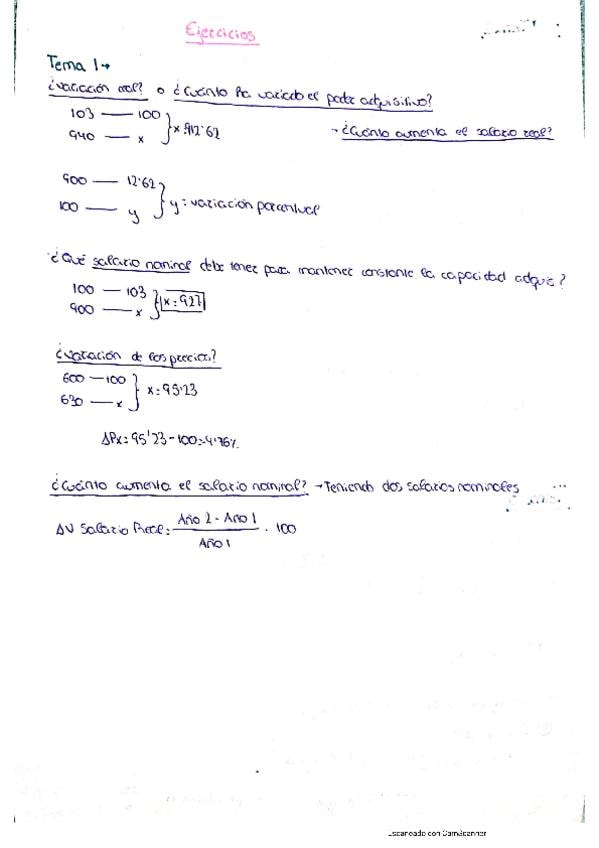 Ejercicios
Tema 1→
¿Variación real? o ¿Cuánto ha variado el poder adquisitivo?
103 — 100
940 — x } x = 912'62
→ ¿Cuánto aumenta el salario real?
900 — 12'62
100 — y } y: variación porcentual
¿Qué salario nominal debe tener para mantener constante la capacidad adquis?
100 — 103
900 — x } x = 927
¿Variación de los precios?
600 — 100
630 — x } x = 95'23
ΔPx = 95'23 - 100 = 4'76%
¿Cuánto aumenta el salario nominal? → Teniendo dos salarios nominales
ΔV Salario Real = Año 2 - Año 1 / Año 1 · 100
Escaneado con CamScanner